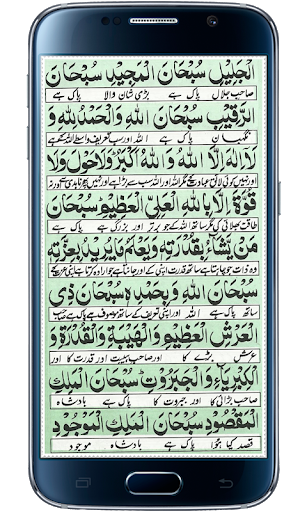 الْجَلِيْلِ سُبْحَانَ الْمَجِيْدِ سُبْحَانَ
صاحب جلال پاک ہے بڑی شان والا پاک ہے
الرَّقِيْبِ سُبْحَانَ اللّٰهِ وَالْحَمْدُ لِلّٰهِ وَ
نگہبان پاک ہے اللہ اور سب تعریف واسطے اللہ کے ہے
لَا اِلٰهَ اِلَّا اللّٰهُ وَاللّٰهُ اَكْبَرُ وَلَا حَوْلَ وَلَا
اور نہیں کوئی لائق عبادت کے مگر اللہ اور اللہ سب سے بڑا ہے اور نہیں
قُوَّةَ اِلَّا بِاللّٰهِ الْعَلِيِّ الْعَظِيْمِ سُبْحَانَ
طاقت بھلائی کی مگر ساتھ اللہ کے جو برتر اور بزرگ ہے پاک ہے
مَنْ يَّشَآءُ بِقُدْرَتِهٖ وَيَعْلَمُ مَا يُرِيْدُ بِعِزَّتِهٖ
وہ ذات جو چاہتا ہے ساتھ قدرت اپنی کے اور جانتا ہے جو ارادہ کرتا ہے
سُبْحَانَ اللّٰهِ وَبِحَمْدِهٖ سُبْحَانَ ذِي
پاک ہے اللہ اور اپنی تعریف کے ساتھ موصوف ہے پاک ہے صاحب
الْعَرْشِ الْعَظِيْمِ وَالْهَيْبَةِ وَالْقُدْرَةِ وَ
عرش بڑے کا اور صاحب ہیبت اور قدرت کا اور
الْكِبْرِيَآءِ وَالْجَبَرُوْتِ سُبْحَانَ الْمَلِكِ
صاحب بڑائی کا اور جبروت کا پاک ہے بادشاہ
الْمَقْصُوْدِ سُبْحَانَ الْمَلِكِ الْمَوْجُوْدِ
قصد کیا ہوا پاک ہے بادشاہ موجود